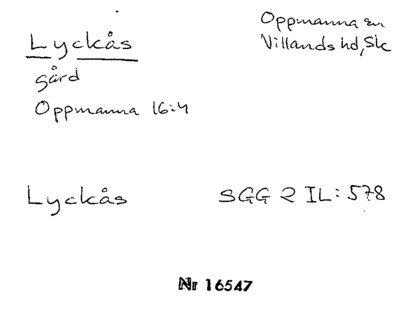 Lyckås
Oppmanna sn
Villands hd, Sk
gård
Oppmanna 16:4
Lyckås
SGG 2 IL: 578
Nr 16547